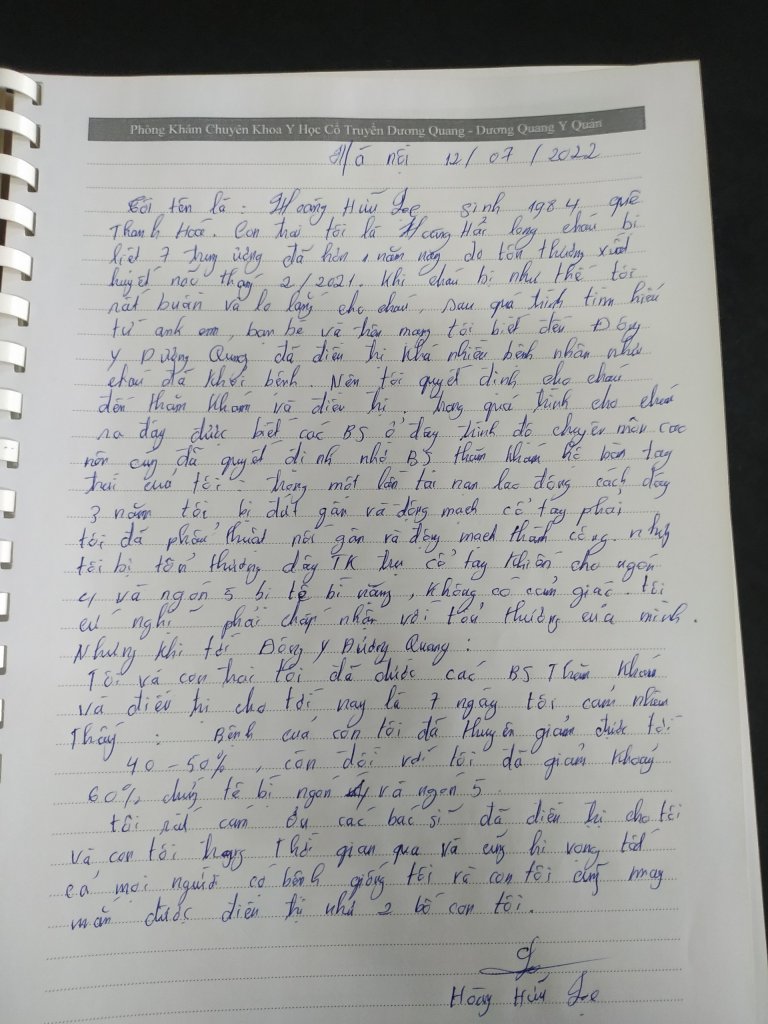 Phòng Khám Chuyên Khoa Y Học Cổ Truyền Dương Quang - Dương Quang Y Quán
Hà nội 12/07/2022
Tôi tên là : Hoàng Hữu sinh 1984 quê
Thanh Hoá. Con trai tôi là Hoàng Hải long cháu bị
liệt 7 trung ương đã hơn 1 năm nay do tổn thương xuất
huyết não tháng 2/2021. Khi cháu bị như thế tôi
rất buồn và lo lắng cho cháu, sau quá trình tìm hiểu
từ anh em, bạn bè và trên mạng tôi biết đến Đông
Y Dương Quang đã điều trị Khá nhiều bệnh nhân như
cháu đã khỏi bệnh. Nên tôi quyết định cho cháu
đến thăm khám và điều trị. trong quá trình cho cháu
ra đây được biết các BS ở đây trình độ chuyên môn cao
nên cũng đã quyết định nhờ BS thăm khám hộ bàn tay
của tôi : trong một lần tai nạn lao động cách đây
3 năm tôi bị đứt gân và động mạch cổ tay phải
tôi đã phẫu thuật nối gân và động mạch thành công. nhưng
tôi bị tổn thương dây TK trụ cổ tay khiến cho ngón
4 và ngón 5 bị tê bì nặng, không có cảm giác. tôi
cứ nghĩ phải chấp nhận với tổn thương của mình.
Nhưng khi tới Đông Y Dương Quang :
Tôi và con trai tôi đã được các BS Thăm Khám
và điều trị cho tới nay là 7 ngày tôi cảm nhận
Thấy : Bệnh của con tôi đã thuyên giảm được tới
40 - 50%, còn đối với tôi đã giảm khoảng
60% chứng tê bì ngón 4 và ngón 5
tôi rất cảm ơn các bác sĩ đã điều trị cho tôi
và con tôi trong Thời gian qua và cũng hi vọng tất
cả mọi người có bệnh giống tôi và con tôi cũng may
mắn được điều trị như 2 bố con tôi.
Hoàng Hữu